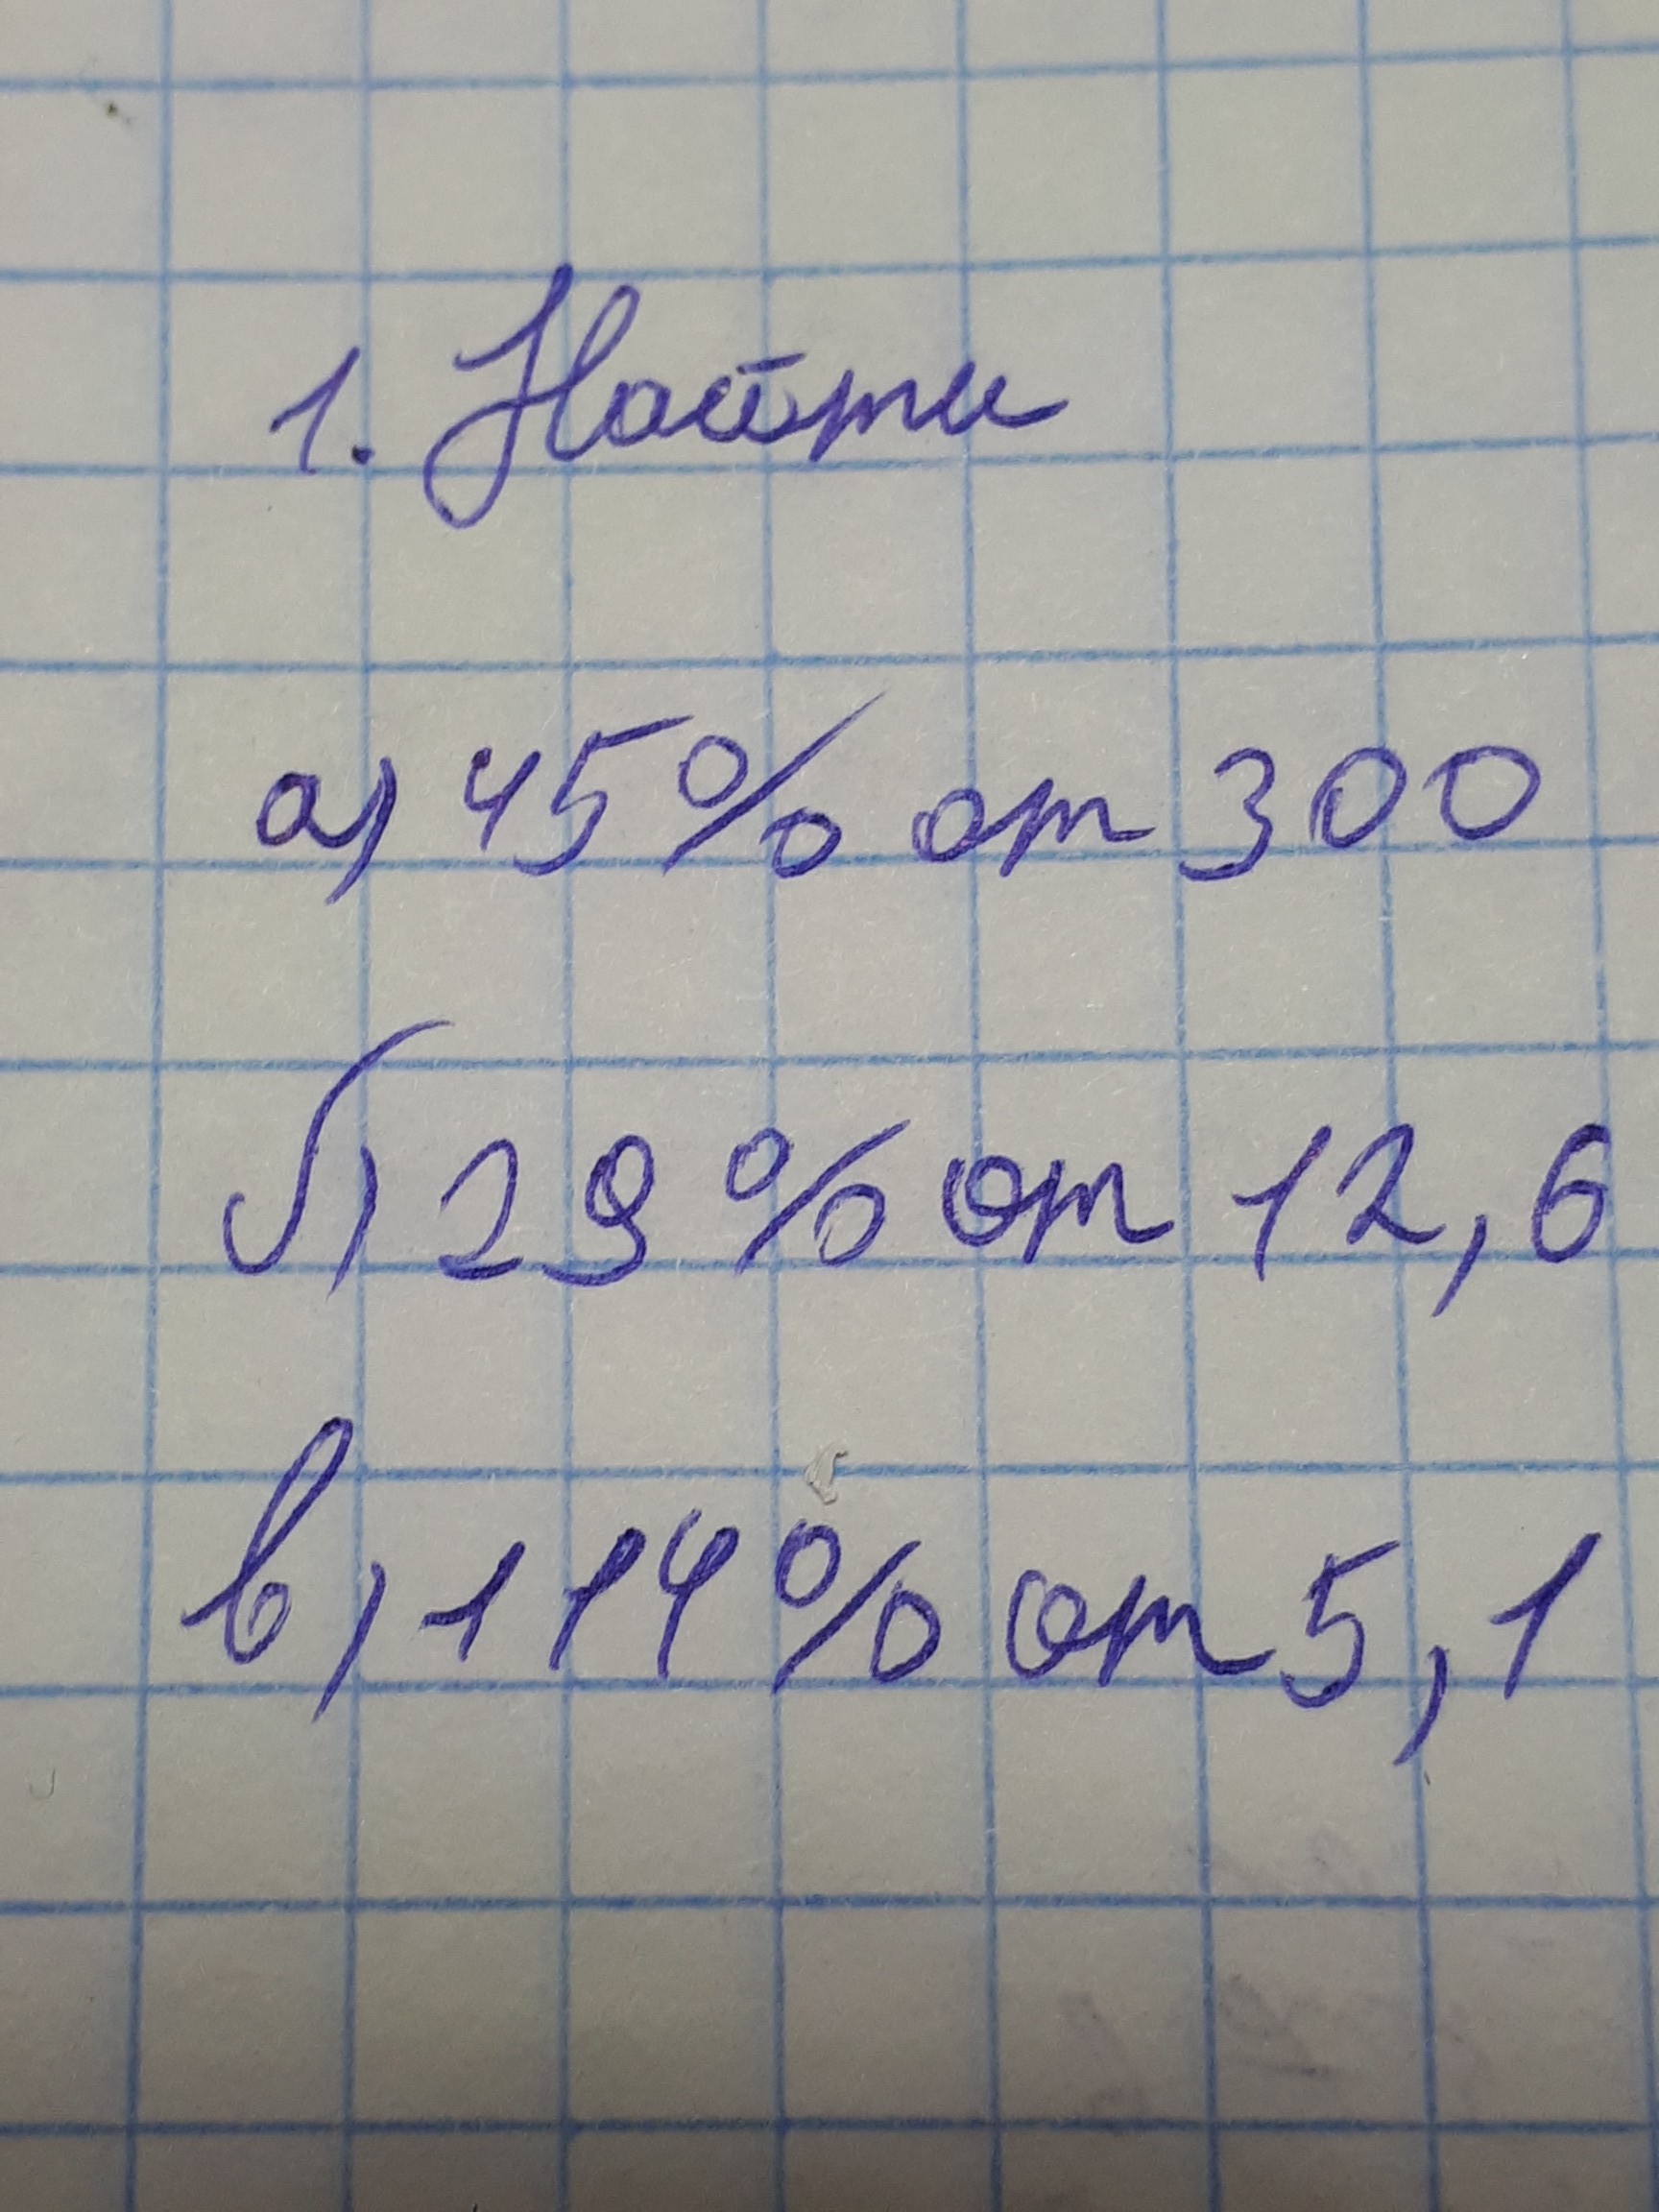 1. Найти
а) 45% от 300
б) 29% от 12,6
в) 114% от 5,1